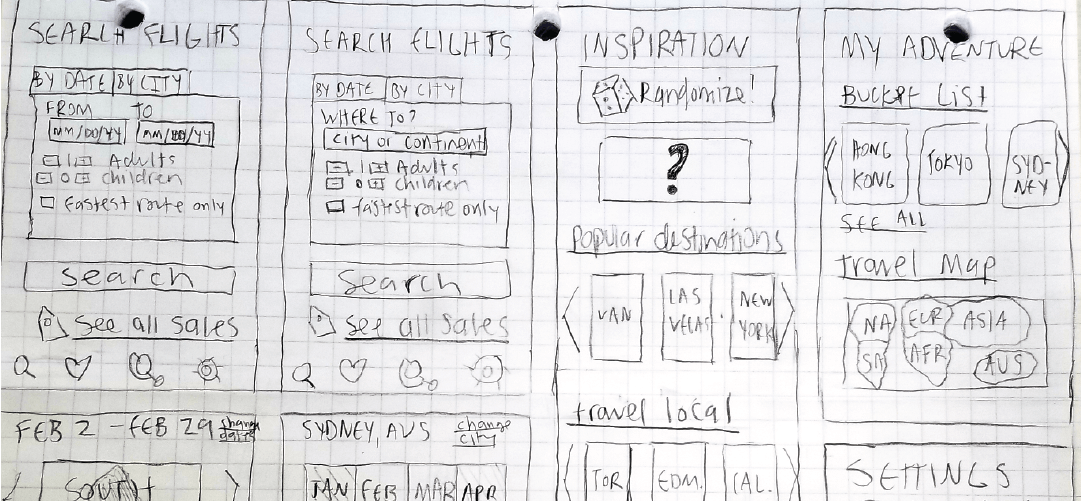 SEARCH FLIGHTS
BY DATE BY CITY
FROM TO
MM/DD/YY MM/DD/YY
- 1 + Adults
- 0 + children
fastest route only
Search
See all Sales
FEB 2 - FEB 29 change
date
SOUTH
SEARCH FLIGHTS
BY DATE BY CITY
WHERE TO?
city or continent
- 1 + Adults
- 0 + children
fastest route only
Search
See all Sales
SYDNEY, AUS change
city
JAN FEB MAR APR
INSPIRATION
Randomize!
?
Popular destinations
VAN
LAS
VEGAS
NEW
YORK
travel local
TOR EDM. CAL.
MY ADVENTURE
BUCKET LIST
HONG
KONG
TOKYO
SYD-
NEY
SEE ALL
travel Map
NA EUR ASIA
SA AFR AUS
SETTINGS